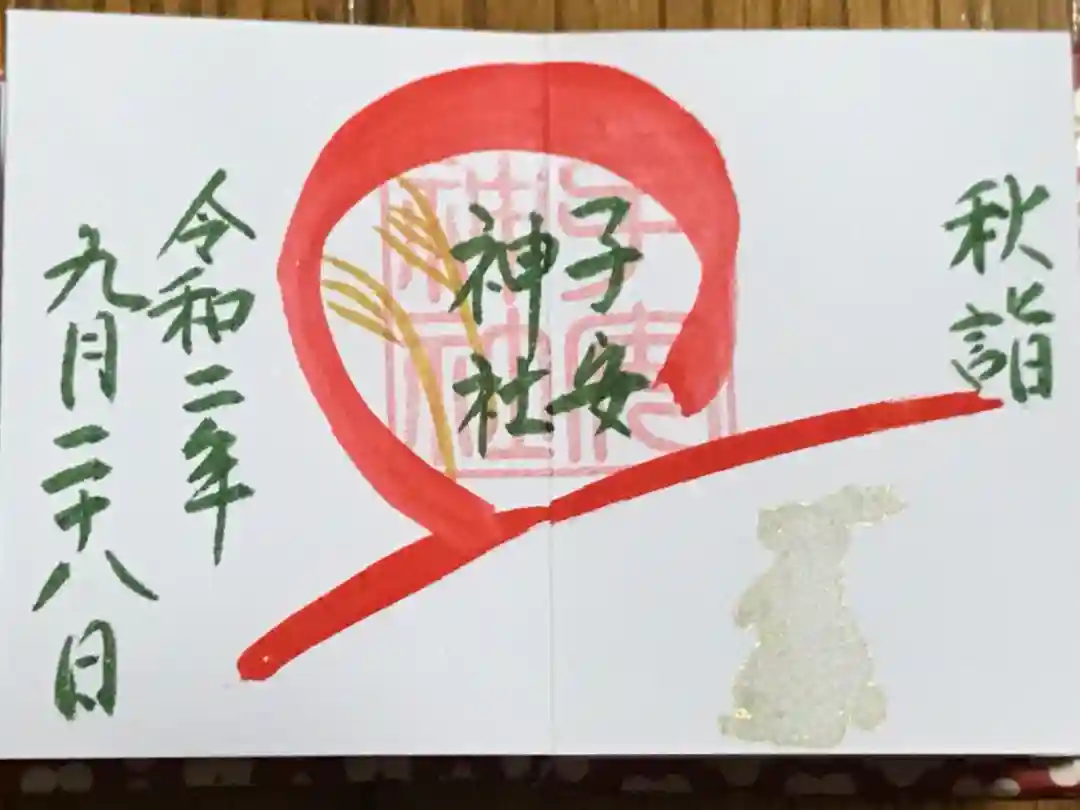 秋詣
子安
神社
子安
神社
令和二年
九月二十八日